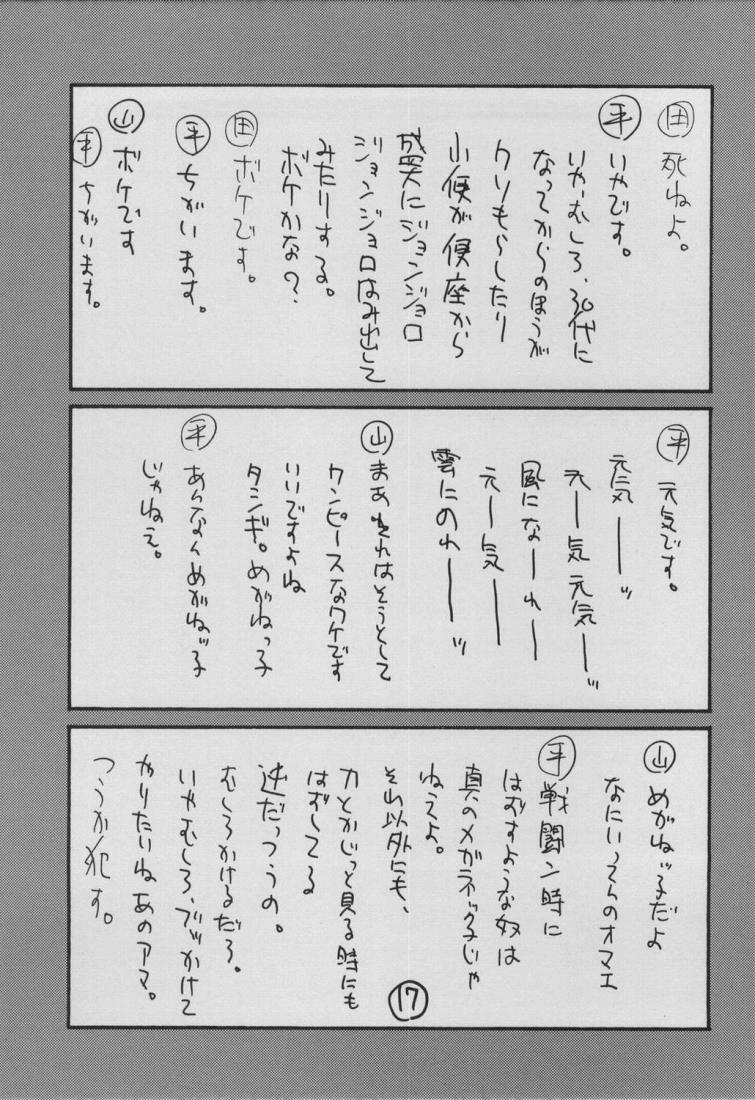 田 死ねよ。
平 いやです。
いや、むしろ、30代に
なってからのほうが
クソもらしたり
小便が便座から
盛大にジョンジョロ
ジョンジョロはみ出して
みたりする。
ボケかな？
田 ボケです。
平 ちがいます。
山 ボケです
平 ちがいます。
平 元気です。
元気ーーッ
元ー気元気ーーッ
風になーれー
元ー気ーー
雲にのれーーッ
山 まあそれはそうとして
ワンピースなワケです
いいですよね
タシギ。めがねっ子
平 あんなんめがねッ子
じゃねえ。
山 めがねッ子だよ
なにいってんのオマエ
平 戦闘ン時に
はずすような奴は
真のメガネッ子じゃ
ねえよ。
それ以外にも、
力とかじっと見る時にも
はずしてる
逆だっつうの。
むしろかけるだろ。
いやむしろ、ブッかけて
やりたいねあのアマ。
つうか犯す。
17